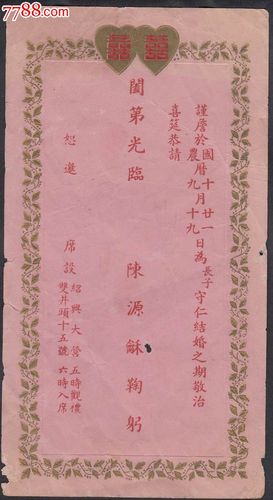 7788.com
囍 囍
謹詹於國農曆十九月廿十一九日為長子守仁結婚之期敬治
喜筵恭請
闔第光臨
陳源龢鞠躬
恕邀
席設
紹興大營五時觀禮
雙井頭十五號六時入席